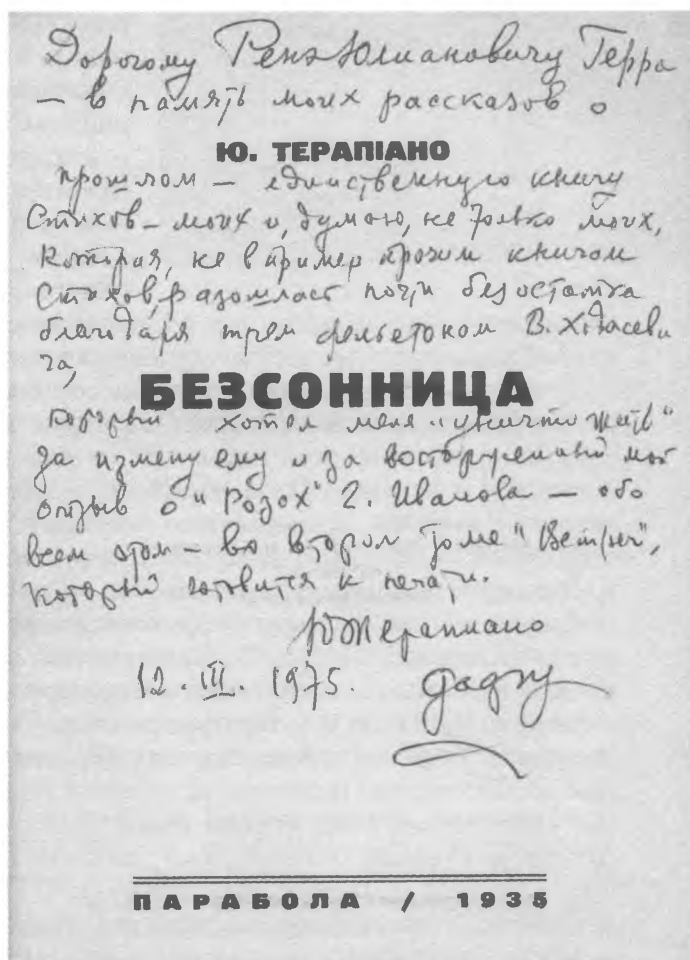 Дорогому Ренэ Юлиановичу Герра
— в память моих рассказов о
Ю. ТЕРАПІАНО
прошлом — единственную книгу
Стихов — моих и, думаю, не только моих,
которая, не в пример прочим книгам
Стихов, разошлась почти без остатка
благодаря трем фельетонам В. Ходасеви
ча,
БЕЗСОННИЦА
который хотел меня "уничтожить"
за измену ему и за восторженный мой
отзыв о "Розах" Г. Иванова — обо
всем этом — во втором томе "Встреч",
который готовится к печати.
Ю Терапиано
12. III. 1975.
ПАРАБОЛА / 1935